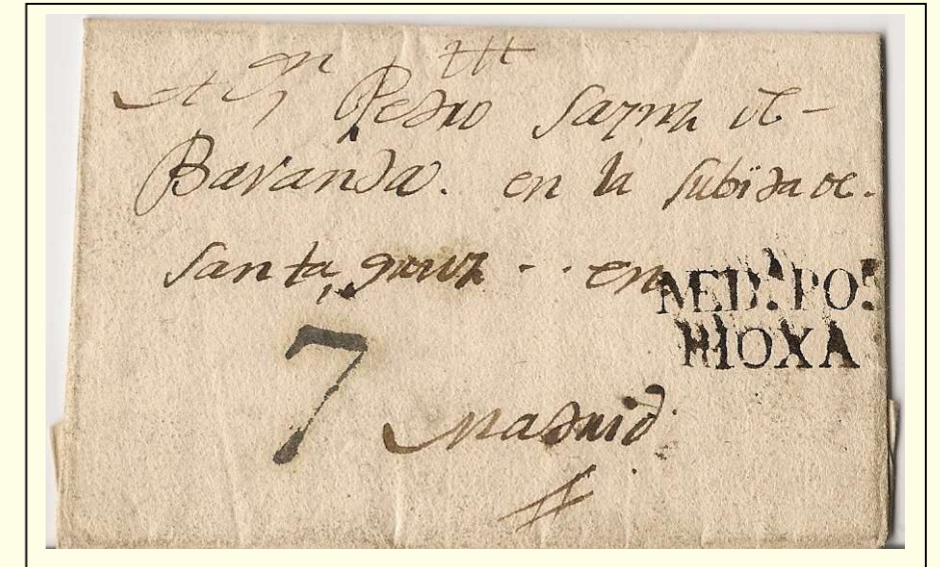 A Dn Pedro de
Baranda. en la subida de
Santa Cruz - - en
MEDA. POR
RIOXA
7 Madrid